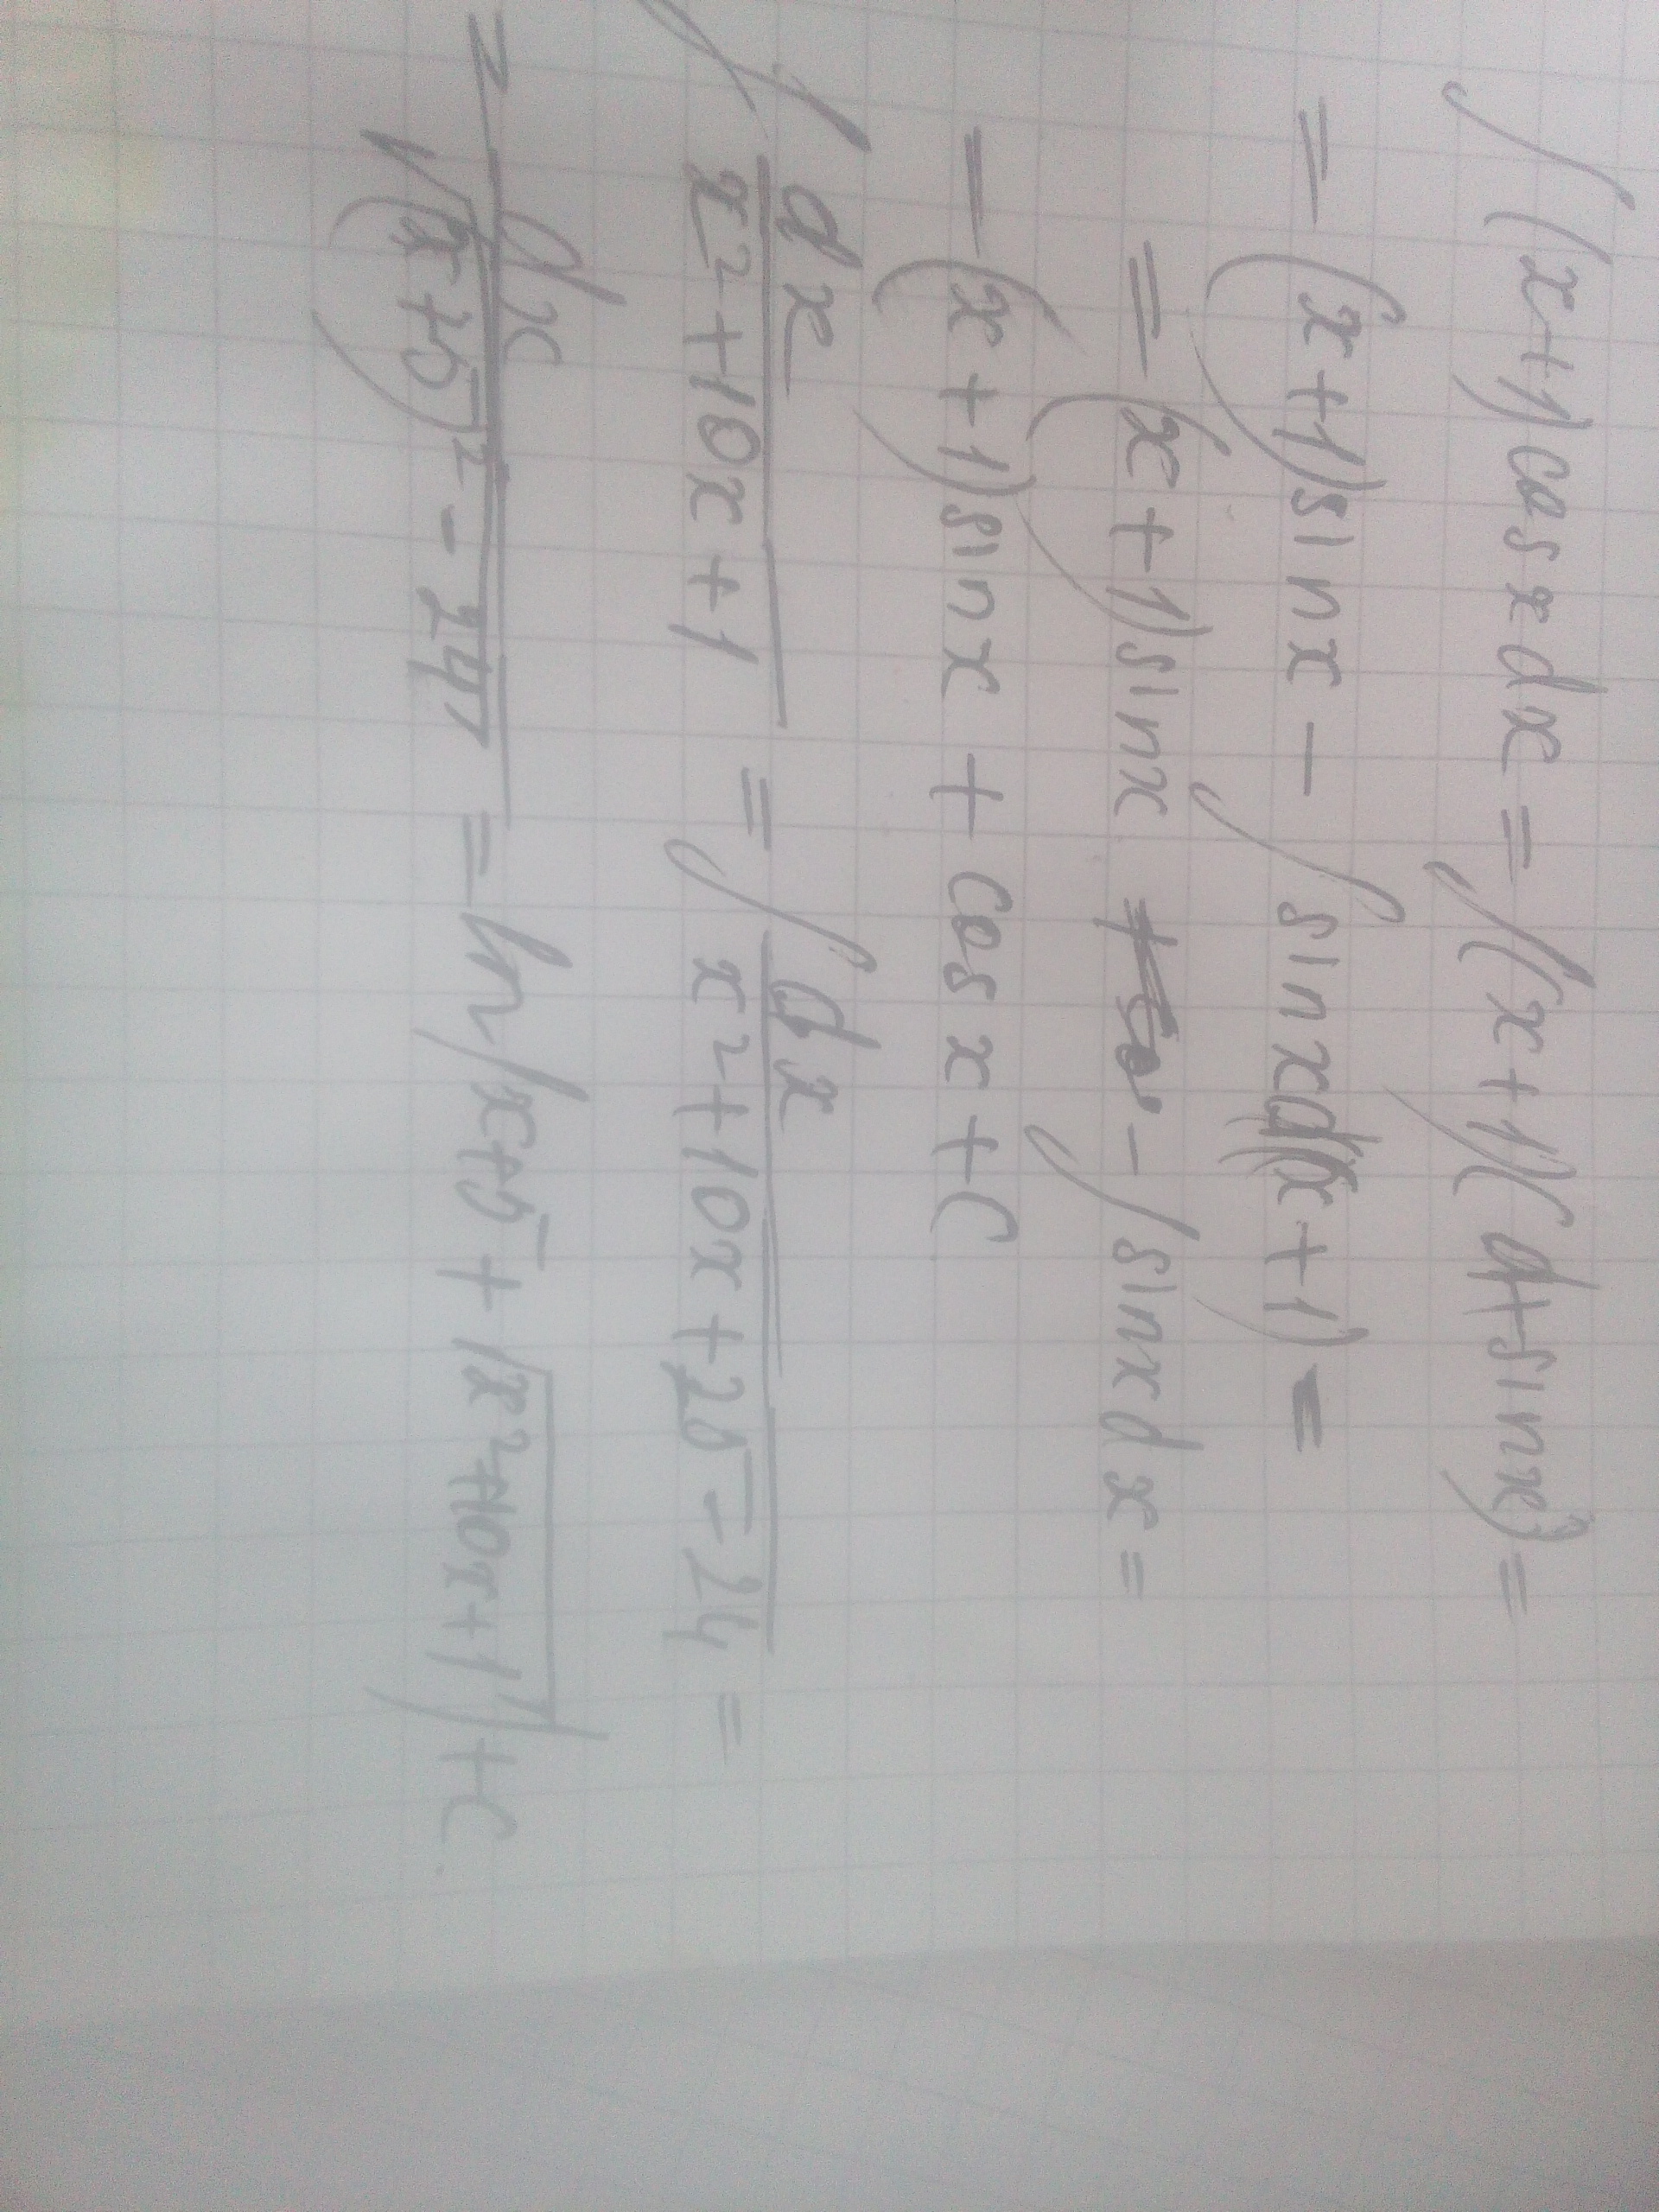 ∫(x+1)cosxdx = ∫(x+1)(d+sinx) =
= (x+1)sinx - ∫sinxd(x+1) =
= (x+1)sinx - ∫sinxdx =
= (x+1)sinx + cosx + C
∫ dx / x²+10x+1 = ∫ dx / x²+10x+25-24 =
= dx / √(x+5)²-24 = ln|x+5 + √x²+10x+1| + C.